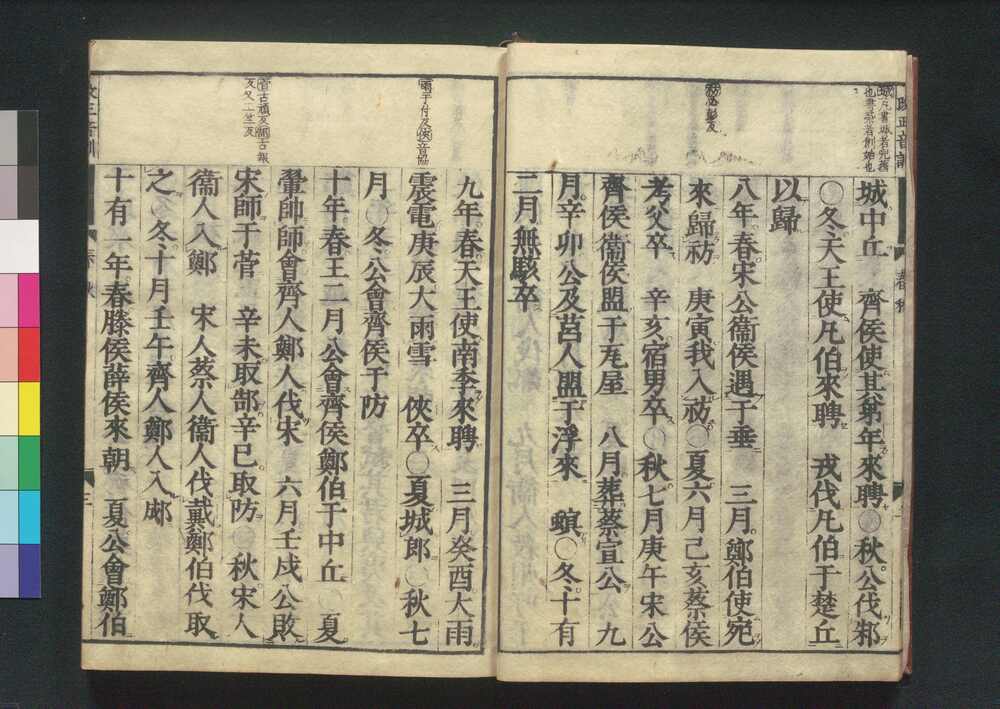 城中丘　齊侯使其弟年來聘○秋公伐邾
○冬天王使凡伯來聘　戎伐凡伯于楚丘
以歸
八年春宋公衞侯遇于垂　三月鄭伯使宛
來歸祊　庚寅我入祊○夏六月己亥蔡侯
考父卒　辛亥宿男卒○秋七月庚午宋公
齊侯衞侯盟于瓦屋　八月葬蔡宣公　九
月辛卯公及莒人盟于浮來　螟○冬十有
二月無駭卒
九年春天王使南季來聘　三月癸酉大雨
震電庚辰大雨雪　俠卒○夏城郎○秋七
月○冬公會齊侯于防
十年春王二月公會齊侯鄭伯于中丘○夏
翬帥師會齊人鄭人伐宋　六月壬戌公敗
宋師于菅　辛未取郜辛巳取防○秋宋人
衞人入鄭　宋人蔡人衞人伐戴鄭伯伐取
之○冬十月壬午齊人鄭人入郕
十有一年春滕侯薛侯來朝　夏公會鄭伯